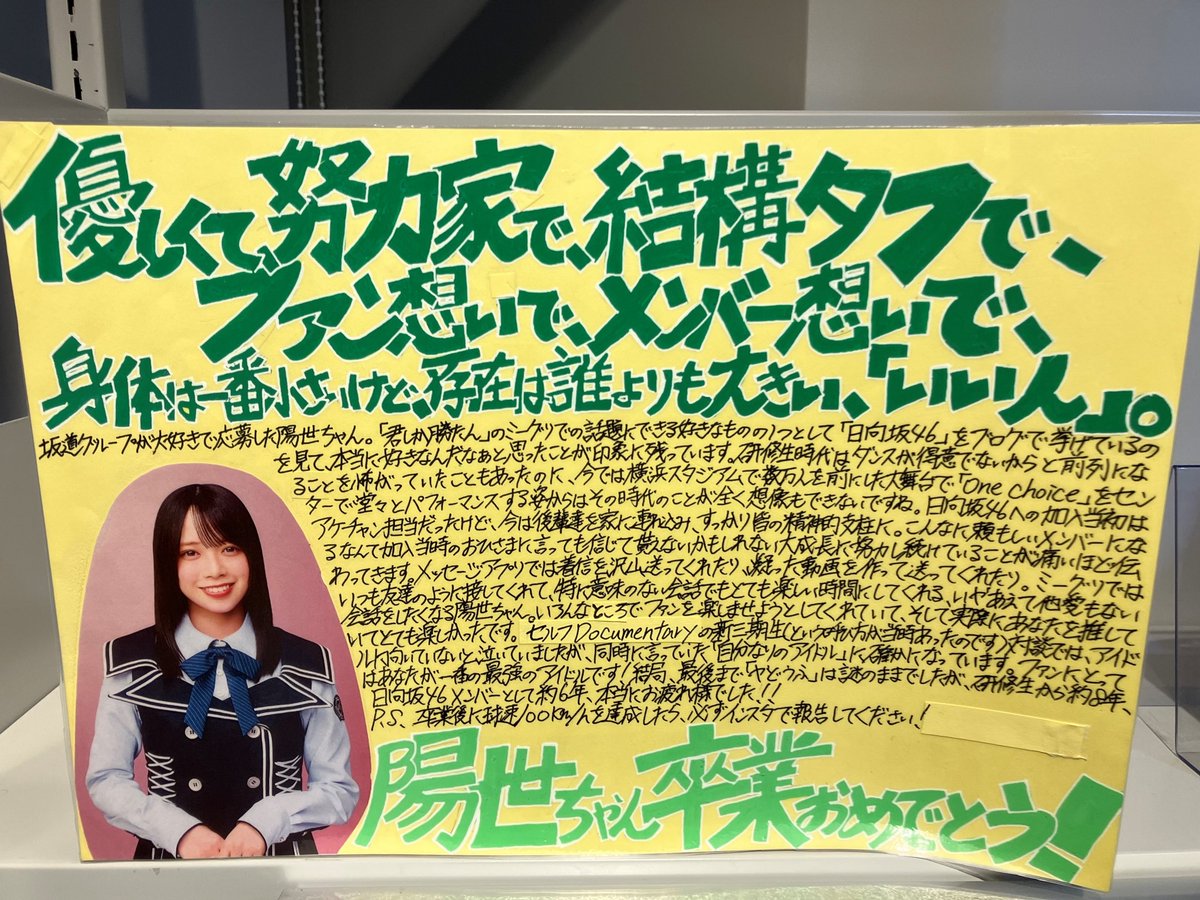 優しくて、努力家で、結構タフで、
ファン想いで、メンバー想いで、
身体は一番小さいけど、存在は誰よりも大きい、「いいりん」。
坂道グループが大好きで応募した陽世ちゃん。「君しか勝たん」のミーグリでの話題にできる好きなものの1つとして「日向坂46」をブログで挙げているの
を見て、本当に好きなんだなあと思ったことが印象に残っています。研修生時代はダンスが得意でないからと前列にな
ることを怖がっていたこともあったのに、今では横浜スタジアムで数万人を前にした大舞台で「One choice」をセン
ターで堂々とパフォーマンスする姿からはその時代のことが全く想像もできないですね。日向坂46への加入当初は
アケチャン担当だったけど、今は後輩達を家に連れ込み、すっかり皆の精神的支柱に。こんなに頼もしいメンバーにな
るなんて加入当時のおひさまに言っても信じて貰えないかもしれない大成長に努力し続けていることが痛いほど伝
わってきます。メッセージアプリでは着信を沢山送ってくれたり、凝った動画を作って送ってくれたり。ミーグリでは
いつも友達のように接してくれて、特に意味のない会話でもとても楽しい時間にしてくれる、いやあえて他愛もない
会話をしたくなる陽世ちゃん。いろんなところでファンを楽しませようとしてくれていて、そして実際にあなたを推して
いてとても楽しかったです。セルフDocumentaryの新三期生(という呼び方が当時あったのです)対談では、アイド
ルに向いていないと泣いていましたが、同時に言っていた「自分なりのアイドル」に確かになっています。ファンにとって
はあなたが一番の最強のアイドルです!結局、最後まで「やどうふ」は謎のままでしたが、研修生から約8年、
日向坂46メンバーとして約6年、本当にお疲れ様でした!!
P.S. 卒業後に球速100km/hを達成したら、必ずインスタで報告してください!
陽世ちゃん卒業おめでとう!